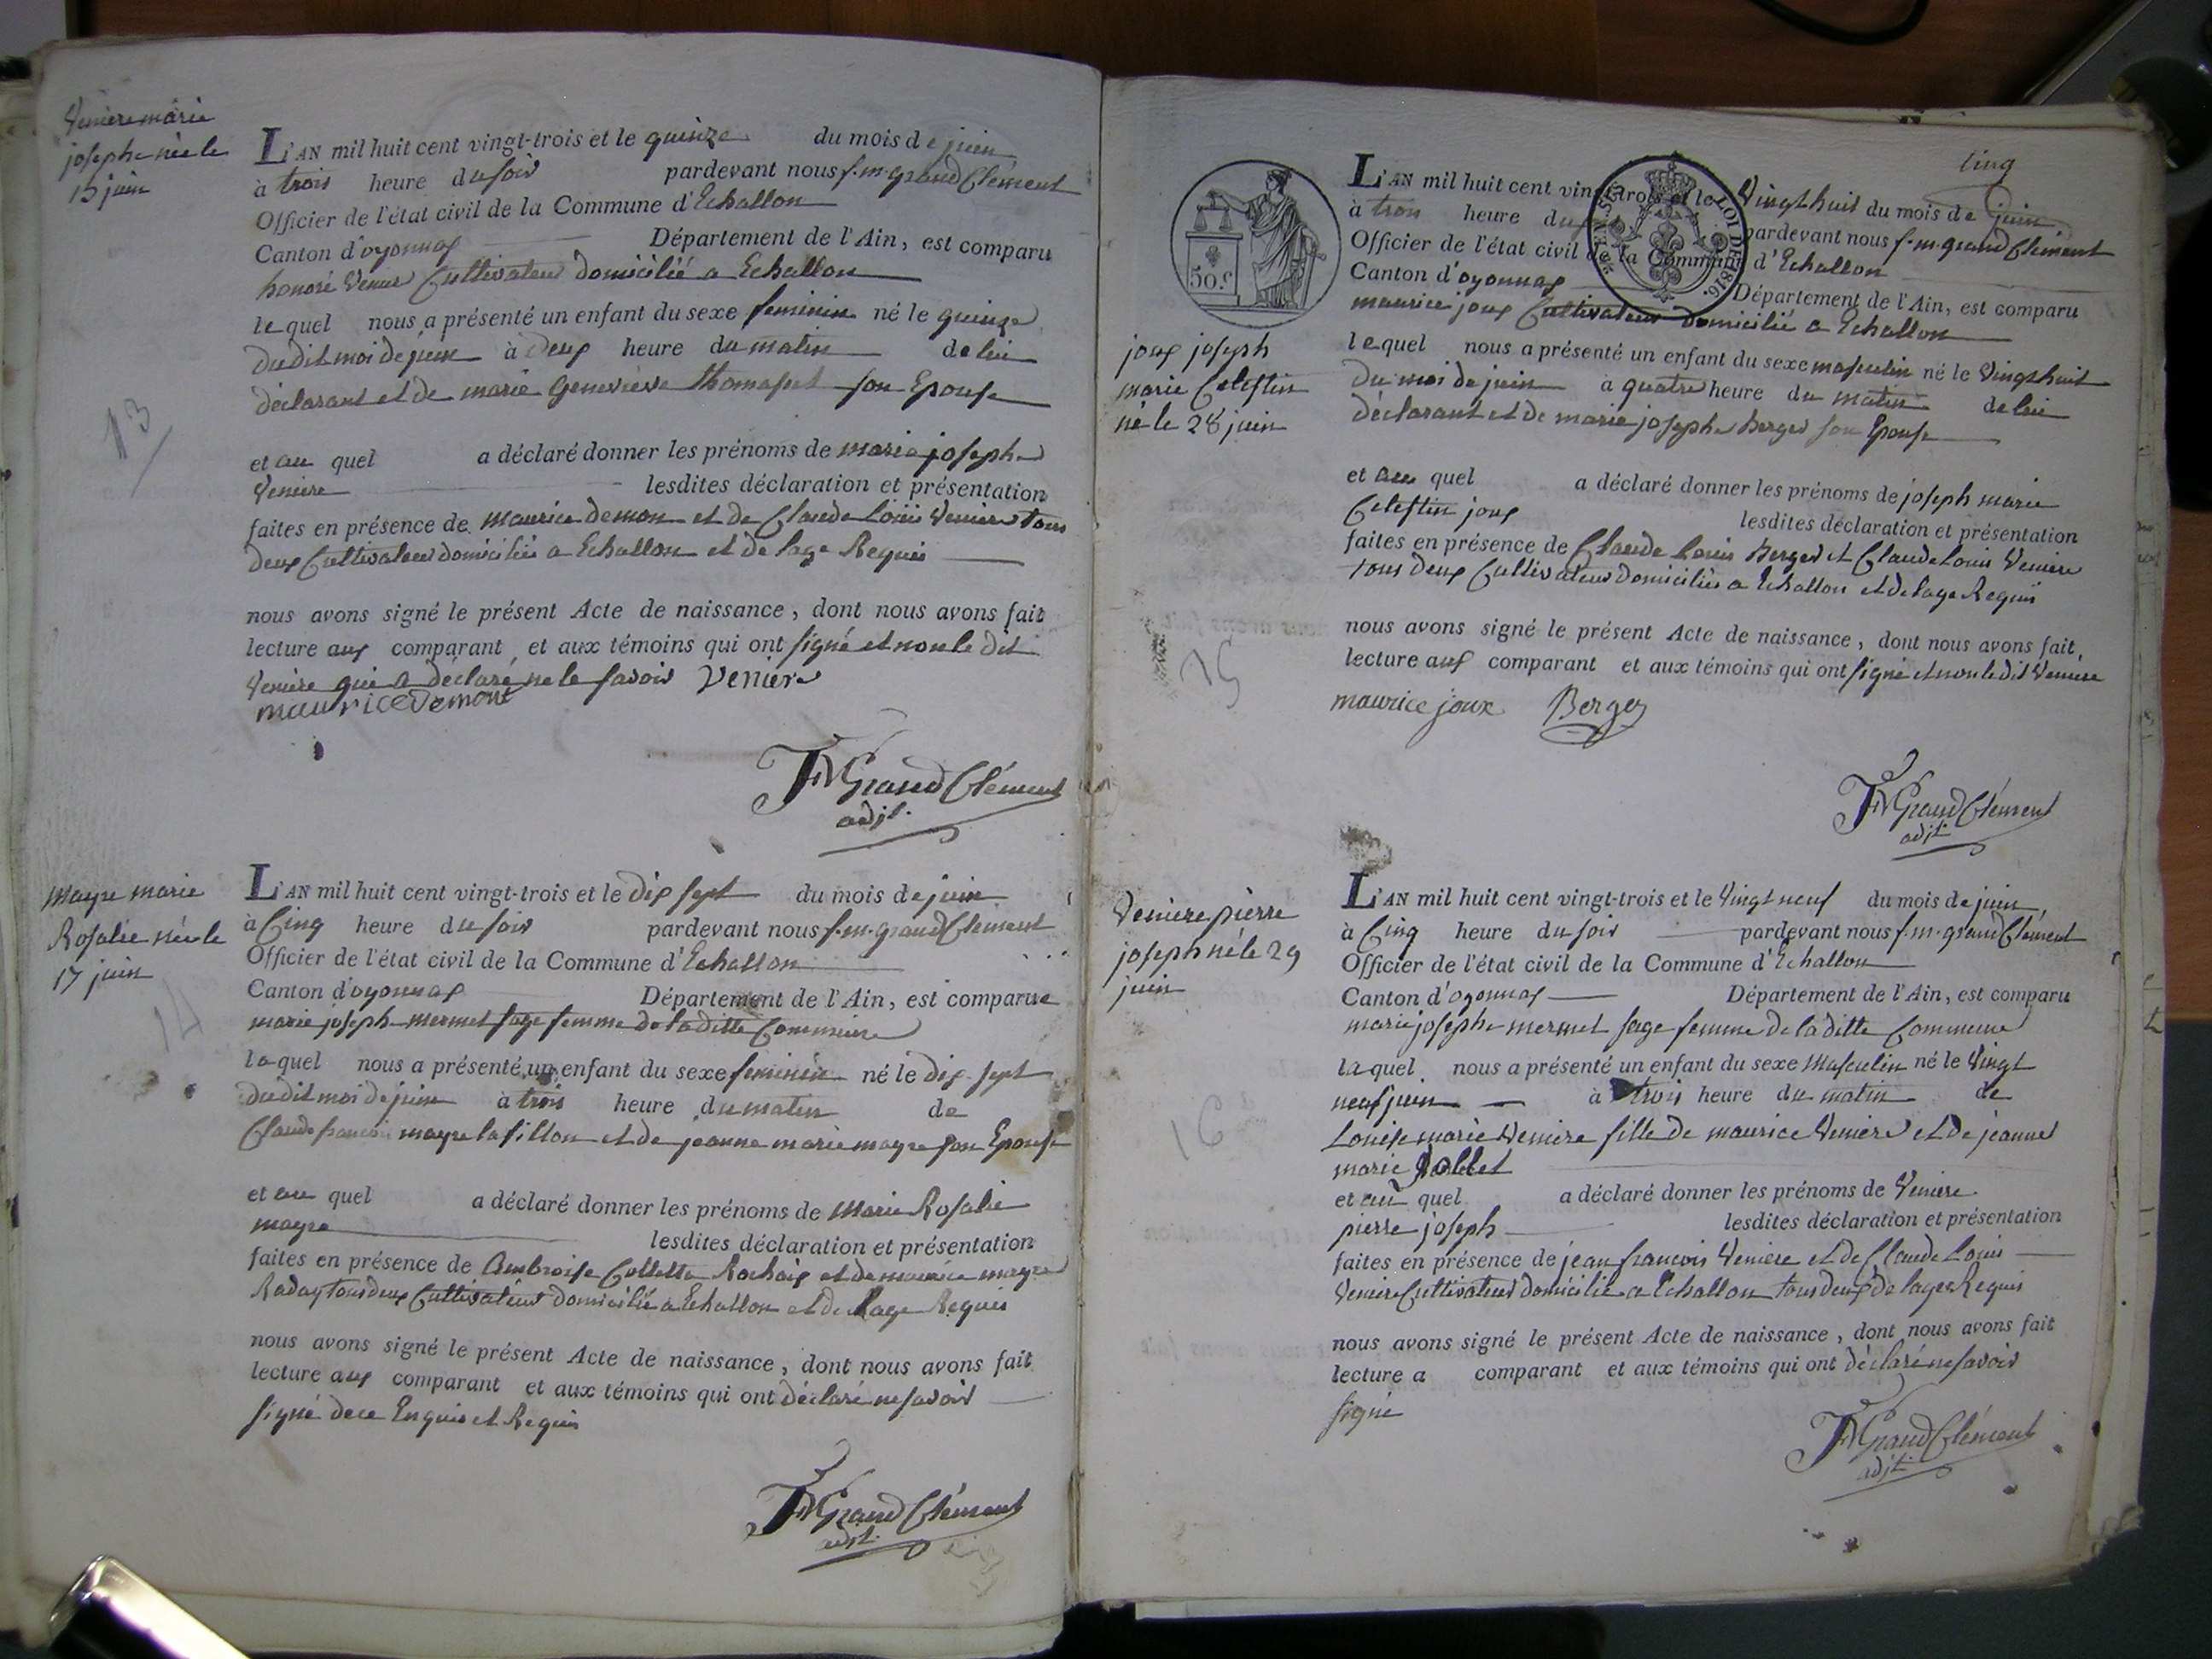 Veniere marie
josephe née le
15 juin
L'AN mil huit cent vingt-trois et le quinze du mois de juin
à trois heure du soir pardevant nous f. m. grand Clément
Officier de l'état civil de la Commune d'Echallon
Canton d'oyonnax Département de l'Ain, est comparu
honoré Veniere Cultivateur domicilié a Echallon
lequel nous a présenté un enfant du sexe feminin né le quinze
dudit moi de juin à Deux heure du matin de lui
déclarant et de marie Geneviève thomasset son Epouse
13
et au quel a déclaré donner les prénoms de marie josephe
Veniere lesdites déclaration et présentation
faites en présence de maurice demon et de Claude Louis Veniere tous
deux Cultivateur domiciliés a Echallon et de lage Requis
nous avons signé le présent Acte de naissance, dont nous avons fait
lecture aux comparant et aux témoins qui ont signé et non le dit
Veniere qui a déclaré ne le savoir Veniere
maurice Demont
FMGrand Clément
adjt.
mayre marie
Rosalie née le
17 juin
14
L'AN mil huit cent vingt-trois et le dix sept du mois de juin
à Cinq heure du soir pardevant nous f. m. grand Clément
Officier de l'état civil de la Commune d'Echallon
Canton d'oyonnax Département de l'Ain, est comparue
marie joseph mermet sage femme de la ditte Commune
laquel nous a présenté un enfant du sexe feminin né le dix sept
dudit moi de juin à trois heure du matin de
Claude francois mayre lafillon et de jeanne marie mayre son Epouse
et au quel a déclaré donner les prénoms de Marie Rosalie
mayre lesdites déclaration et présentation
faites en présence de Ambroise Colletta Rochaix et de maurice mayre
Raday tous deux Cultivateur domicilié a Echallon et de lage Requis
nous avons signé le présent Acte de naissance, dont nous avons fait
lecture aux comparant et aux témoins qui ont déclaré ne savoir
signé de ce Enquis et Requis
FMGrand Clément
adjt.
cinq
50.c
TIMB. SEC. LOI DE 1816.
L'AN mil huit cent vingt-trois et le Vingt huit du mois de juin
à trois heure du pardevant nous f. m. grand Clément
Officier de l'état civil de la Commune d'Echallon
Canton d'oyonnax Département de l'Ain, est comparu
maurice joux Cultivateur Domicilié a Echallon
joux joseph
marie Celestin
né le 28 juin
lequel nous a présenté un enfant du sexe masculin né le Vingt huit
du moi de juin à quatre heure du matin de lui
déclarant et de marie josephe Berger son Epouse
et au quel a déclaré donner les prénoms de joseph marie
Celestin joux lesdites déclaration et présentation
faites en présence de Claude Louis Berger et Claude Louis Veniere
tous deux Cultivateur Domiciliés a Echallon et de lage Requis
15
nous avons signé le présent Acte de naissance, dont nous avons fait
lecture aux comparant et aux témoins qui ont signé et non le dit Veniere
maurice joux Berger
FMGrand Clément
adjt.
Veniere pierre
joseph né le 29
juin
16
L'AN mil huit cent vingt-trois et le Vingt neuf du mois de juin
à Cinq heure du soir pardevant nous f. m. grand Clément
Officier de l'état civil de la Commune d'Echallon
Canton d'oyonnax Département de l'Ain, est comparu
marie josephe mermet sage femme de la ditte Commune
laquel nous a présenté un enfant du sexe Masculin né le Vingt
neuf juin à trois heure du matin de
Louise marie Veniere fille de maurice Veniere et de jeanne
marie
et au quel a déclaré donner les prénoms de Veniere
pierre joseph lesdites déclaration et présentation
faites en présence de jean francois Veniere et de Claude Louis
Veniere Cultivateur domicilié a Echallon tous deux de lage Requis
nous avons signé le présent Acte de naissance, dont nous avons fait
lecture a comparant et aux témoins qui ont déclaré ne savoir
signé
FMGrand Clément
adjt.